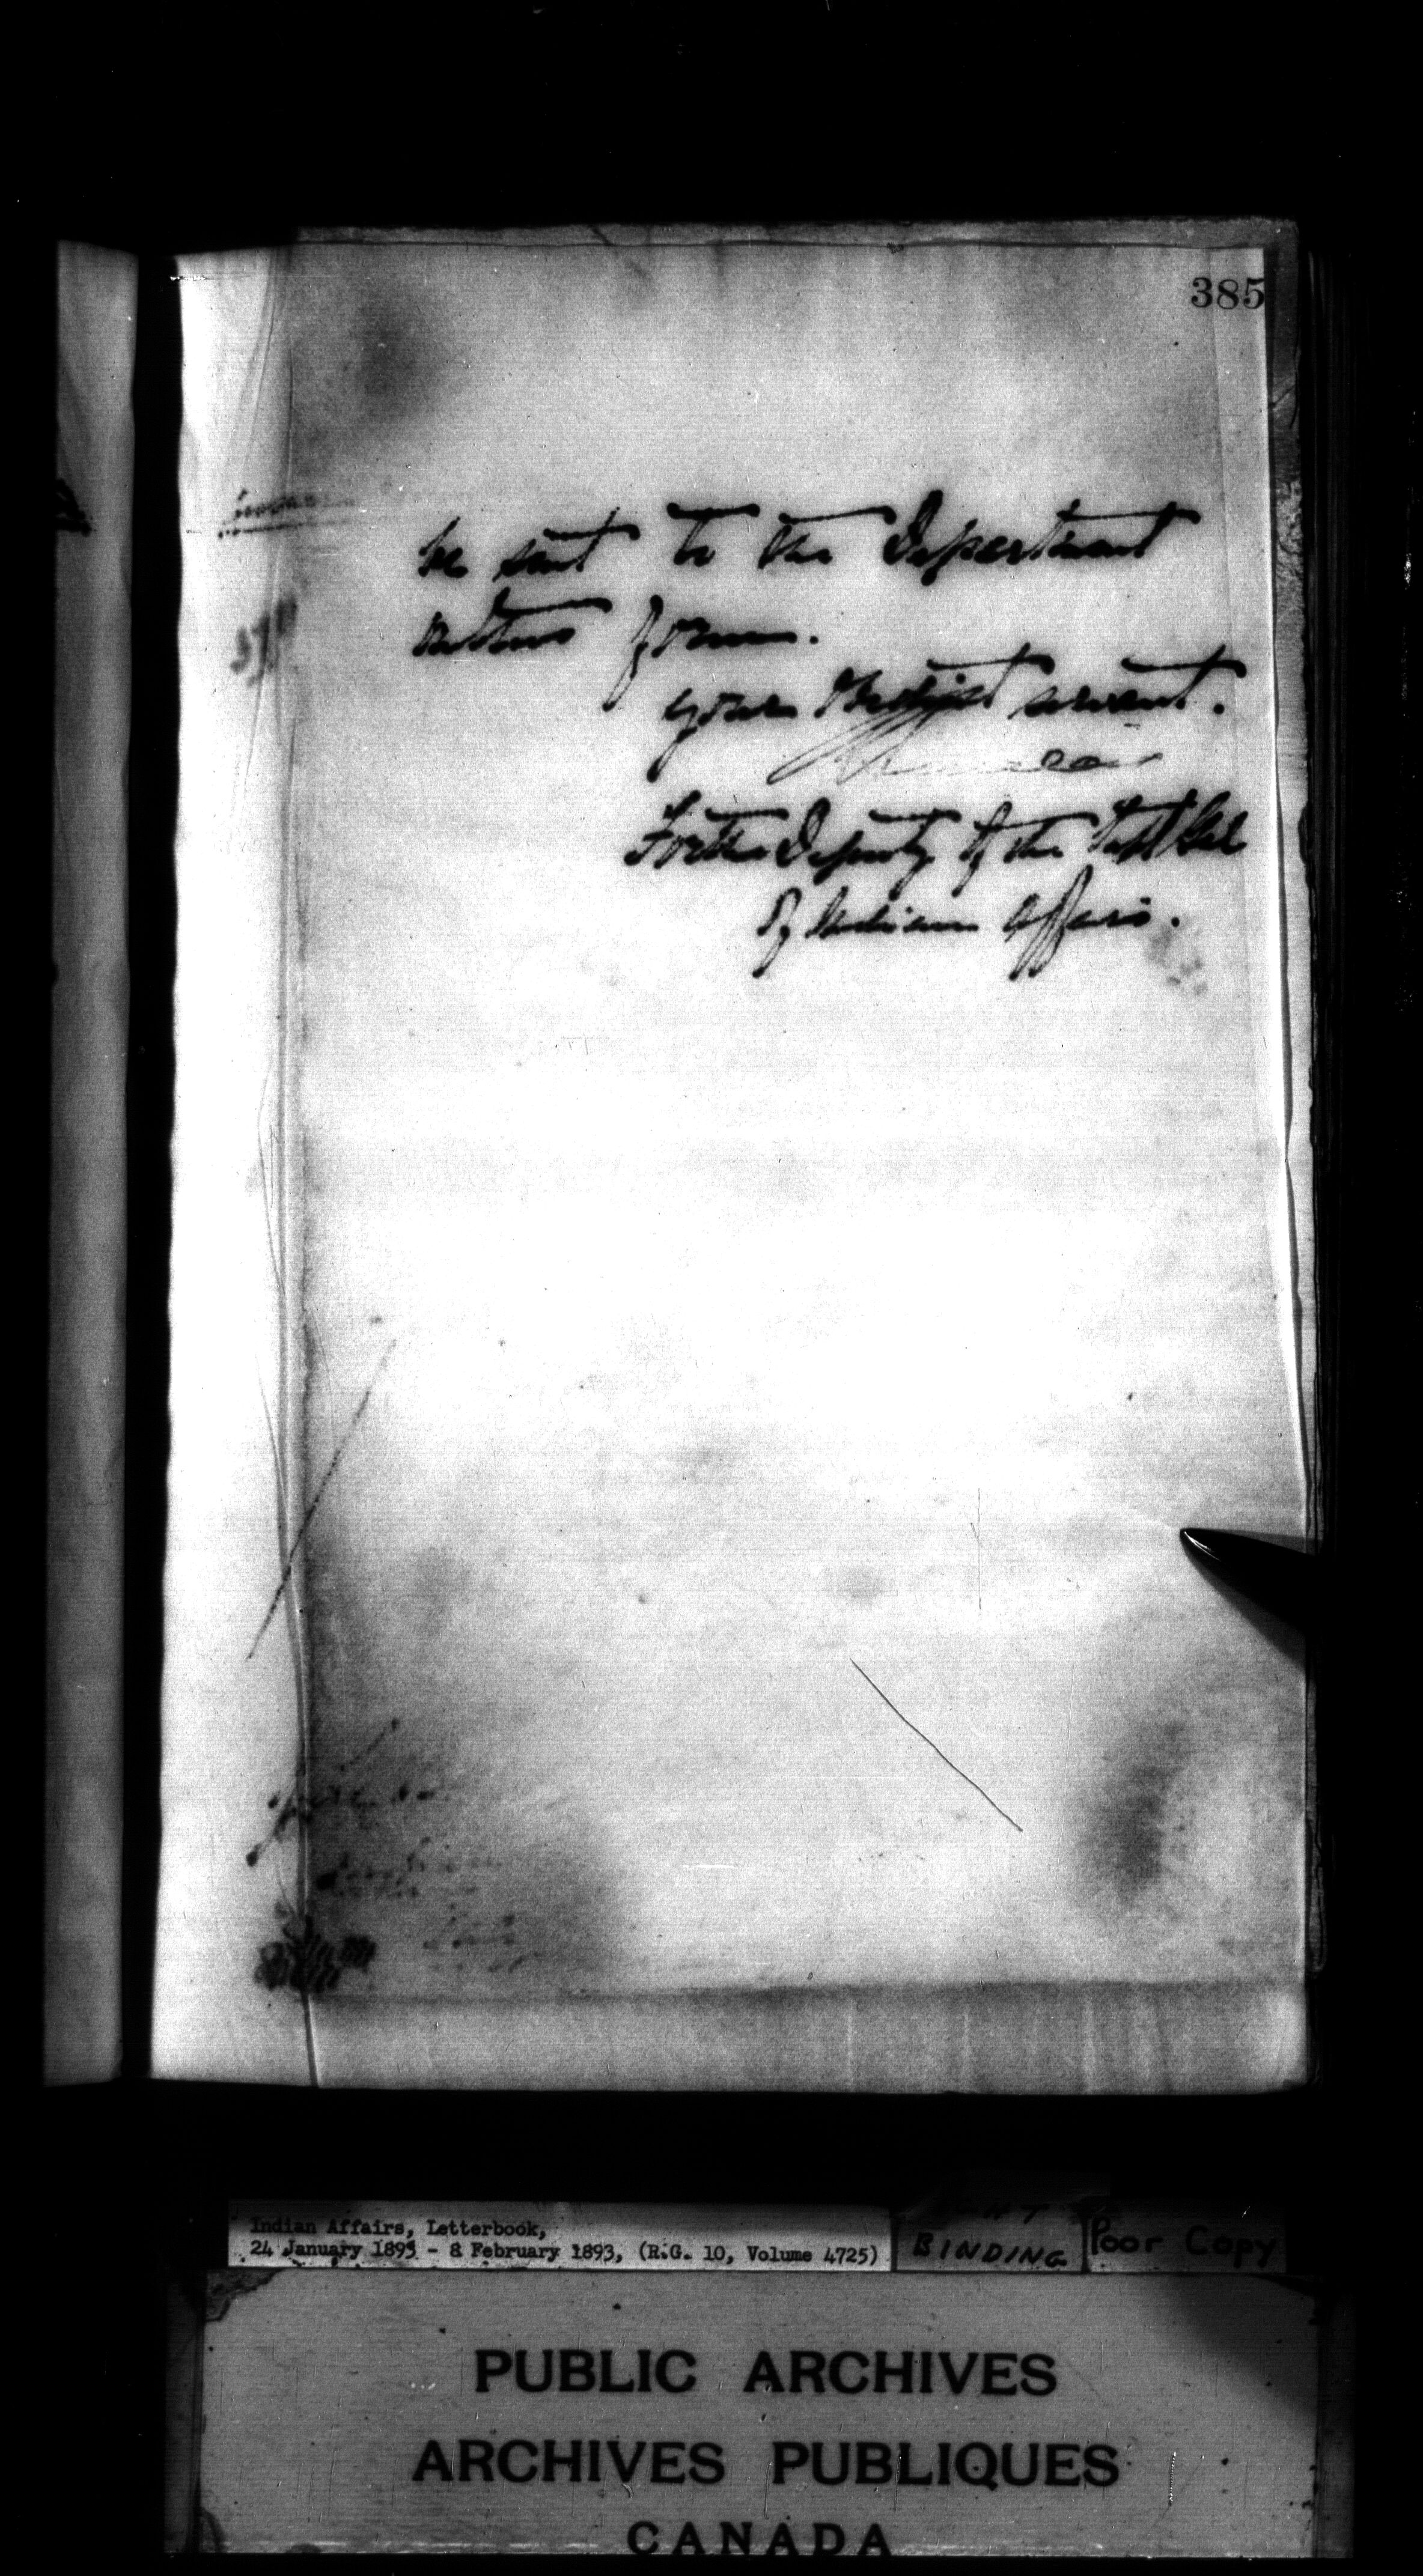 385
be sent to the Department
form.
Your obedient servant.
For the Deputy of the Supt Gel
of Indian Affairs.
Indian Affairs, Letterbook,
24 January 1893 - 8 February 1893, (R.G. 10, Volume 4725)
BINDING
Poor Copy
PUBLIC ARCHIVES
ARCHIVES PUBLIQUES
CANADA